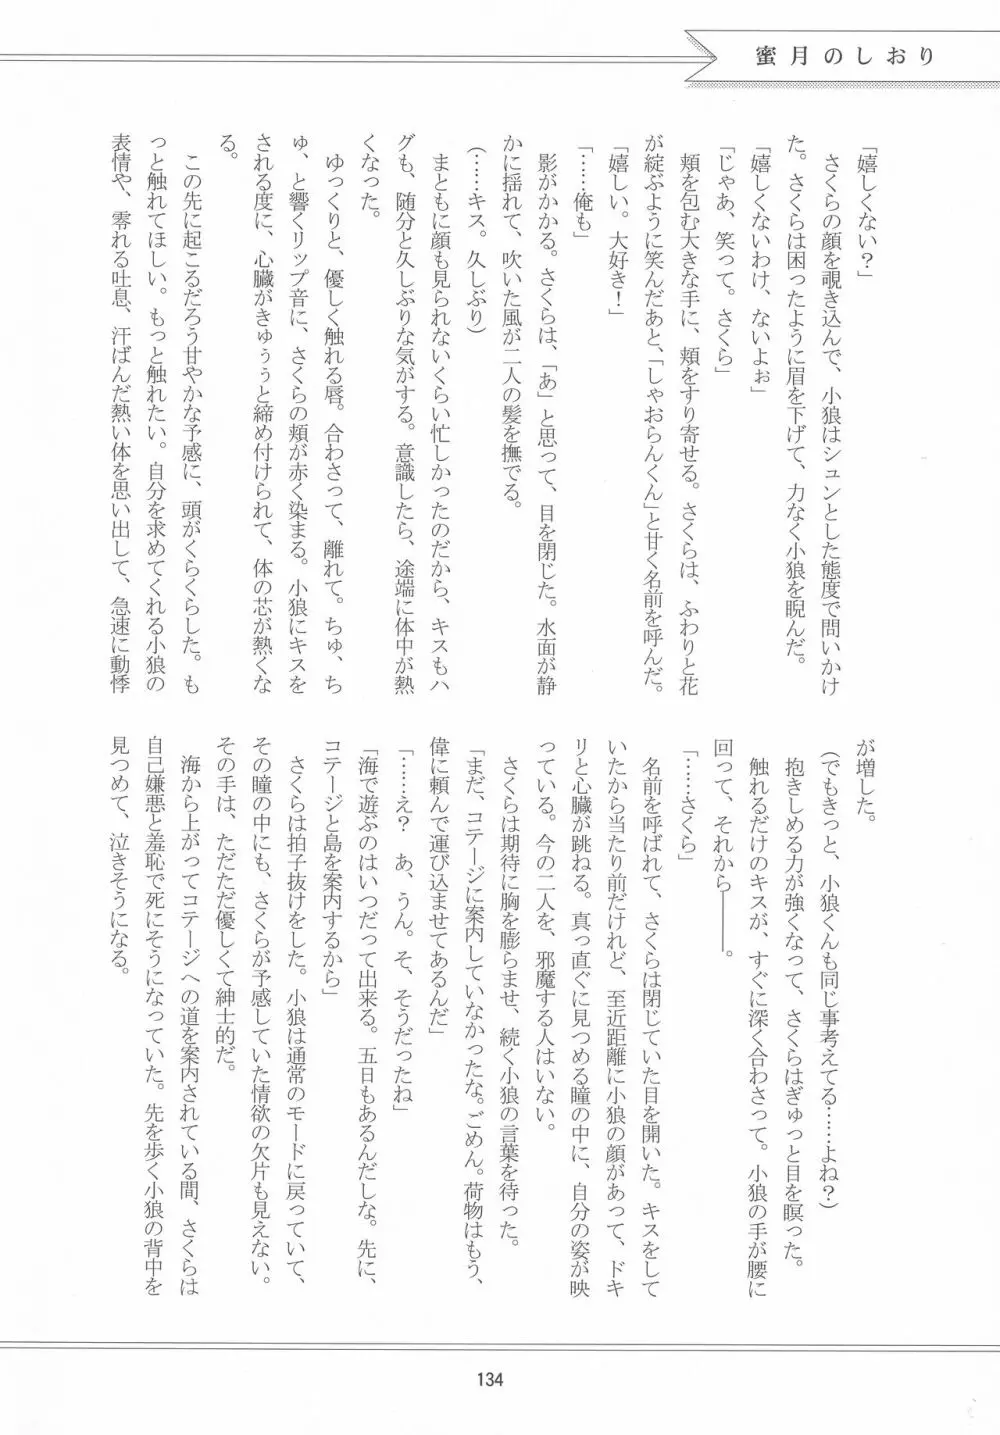 蜜月のしおり
「嬉しくない？」
さくらの顔を覗き込んで、小狼はシュンとした態度で問いかけ
た。さくらは困ったように眉を下げて、力なく小狼を睨んだ。
「嬉しくないわけ、ないよぉ」
「じゃあ、笑って。さくら」
頬を包む大きな手に、頬をすり寄せる。さくらは、ふわりと花
が綻ぶように笑んだあと、「しゃおらんくん」と甘く名前を呼んだ。
「嬉しい。大好き！」
「……俺も」
影がかかる。さくらは、「あ」と思って、目を閉じた。水面が静
かに揺れて、吹いた風が二人の髪を撫でる。
（……キス。久しぶり）
まともに顔も見られないくらい忙しかったのだから、キスもハ
グも、随分と久しぶりな気がする。意識したら、途端に体中が熱
くなった。
ゆっくりと、優しく触れる唇。合わさって、離れて。ちゅ、ち
ゅ、と響くリップ音に、さくらの頬が赤く染まる。小狼にキスを
される度に、心臓がきゅぅぅと締め付けられて、体の芯が熱くな
る。
この先に起こるだろう甘やかな予感に、頭がくらくらした。も
っと触れてほしい。もっと触れたい。自分を求めてくれる小狼の
表情や、零れる吐息、汗ばんだ熱い体を思い出して、急速に動悸
が増した。
（でもきっと、小狼くんも同じ事考えてる……よね？）
抱きしめる力が強くなって、さくらはぎゅっと目を瞑った。
触れるだけのキスが、すぐに深く合わさって。小狼の手が腰に
回って、それから――――。
「……さくら」
名前を呼ばれて、さくらは閉じていた目を開いた。キスをして
いたから当たり前だけれど、至近距離に小狼の顔があって、ドキ
リと心臓が跳ねる。真っ直ぐに見つめる瞳の中に、自分の姿が映
っている。今の二人を、邪魔する人はいない。
さくらは期待に胸を膨らませ、続く小狼の言葉を待った。
「まだ、コテージに案内していなかったな。ごめん。荷物はもう、
偉に頼んで運び込ませてあるんだ」
「……え？　あ、うん。そ、そうだったね」
「海で遊ぶのはいつだって出来る。五日もあるんだしな。先に、
コテージと島を案内するから」
さくらは拍子抜けをした。小狼は通常のモードに戻っていて、
その瞳の中にも、さくらが予感していた情欲の欠片も見えない。
その手は、ただただ優しくて紳士的だ。
海から上がってコテージへの道を案内されている間、さくらは
自己嫌悪と羞恥で死にそうになっていた。先を歩く小狼の背中を
見つめて、泣きそうになる。
134